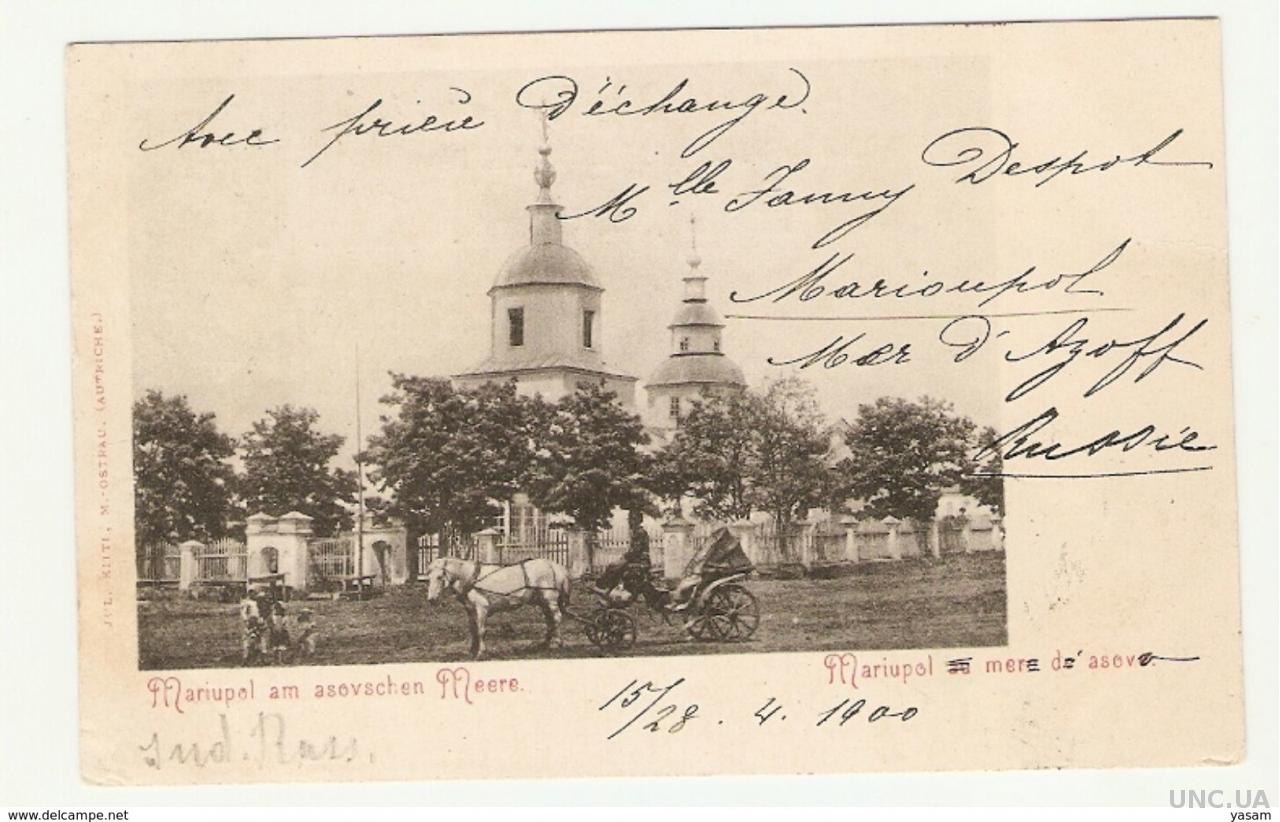 Avec prière D'échange.
Mlle Fanny Despot
Marioupol
Mer d'Azoff
Russie
JUL. KIITI, M.-OSTRAU. (AUTRICHE.)
Mariupol am asovschen Meere.
Mariupol au mere de asove.
15/28. 4. 1900
Sud. Russ.
UNC.UA
www.delcampe.net
yasam